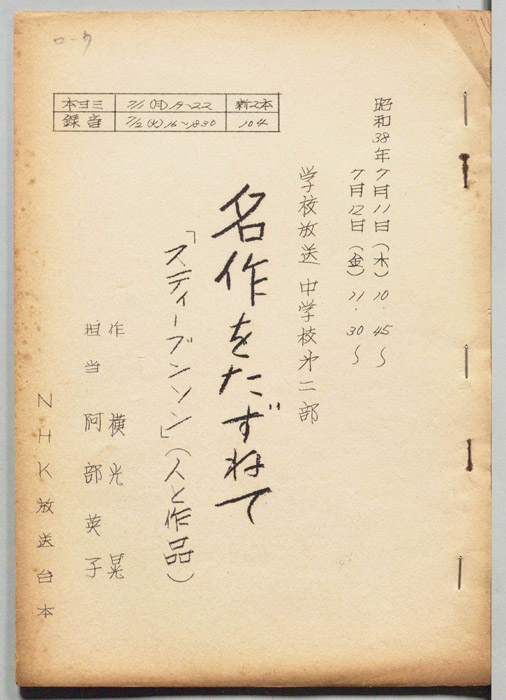 ローウ
本ヨミ 7/1(月)19~22 新ス本
録音 7/2(火)16~18 30 104
昭和38年7月11日(木)10.45~
7月12日(金)11.30~
学校放送 中学校第二部
名作をたずねて
「スティーブンソン」(人と作品)
作 横光晃
担当 阿部英子
NHK放送台本